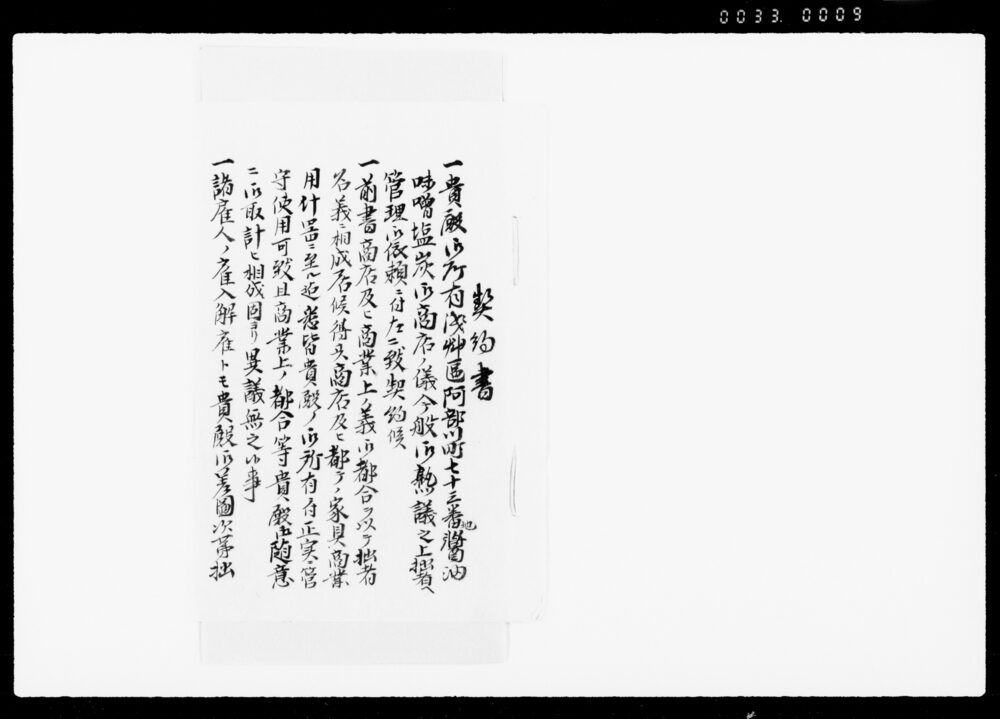 0033. 0009
契約書
一貴殿御所有浅艸區阿部川町七十三番地醬油
味噌塩炭御商店ノ儀今般御熟議之上拙者ヘ
管理御依頼ニ付左ニ致契約候
一前書商店及ヒ商業上ノ義御都合ヲ以テ拙者
名義ニ相成居候得共商店及ヒ都テノ家具商業
用什器ニ至ル迠悉皆貴殿ノ御所有ニ付正実ニ管
守使用可致且商業上ノ都合等貴殿御随意
ニ御取計ヒ相成因ヨリ異議無之候事
一諸雇人ノ雇入解雇トモ貴殿御差圖次第拙